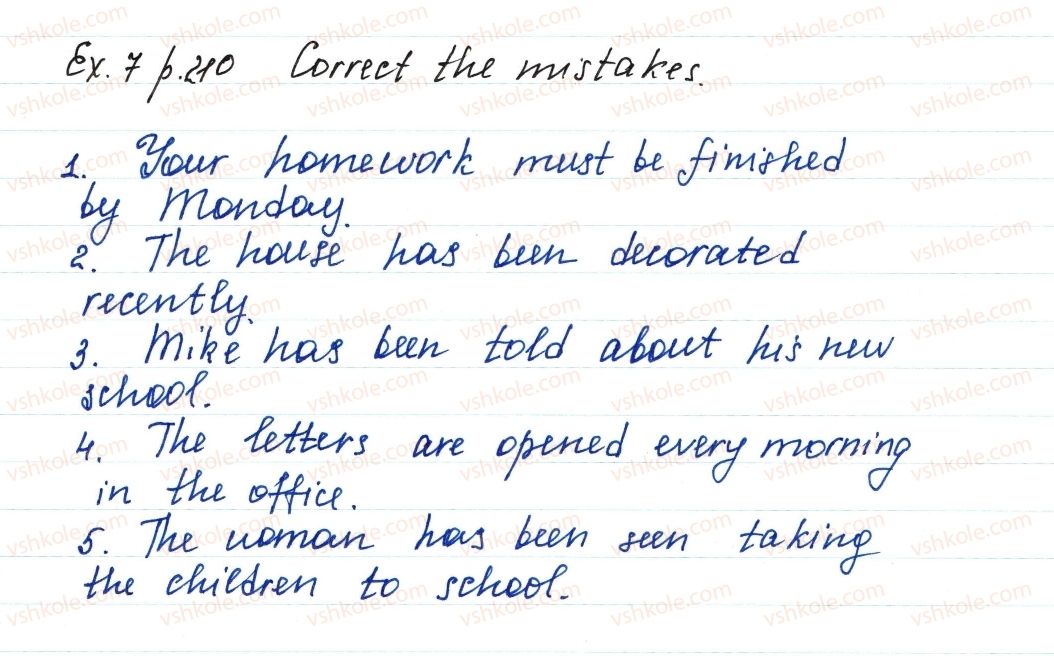 Ex. 7 p. 210 Correct the mistakes.
1. Your homework must be finished
by Monday.
2. The house has been decorated
recently.
3. Mike has been told about his new
school.
4. The letters are opened every morning
in the office.
5. The woman has been seen taking
the children to school.